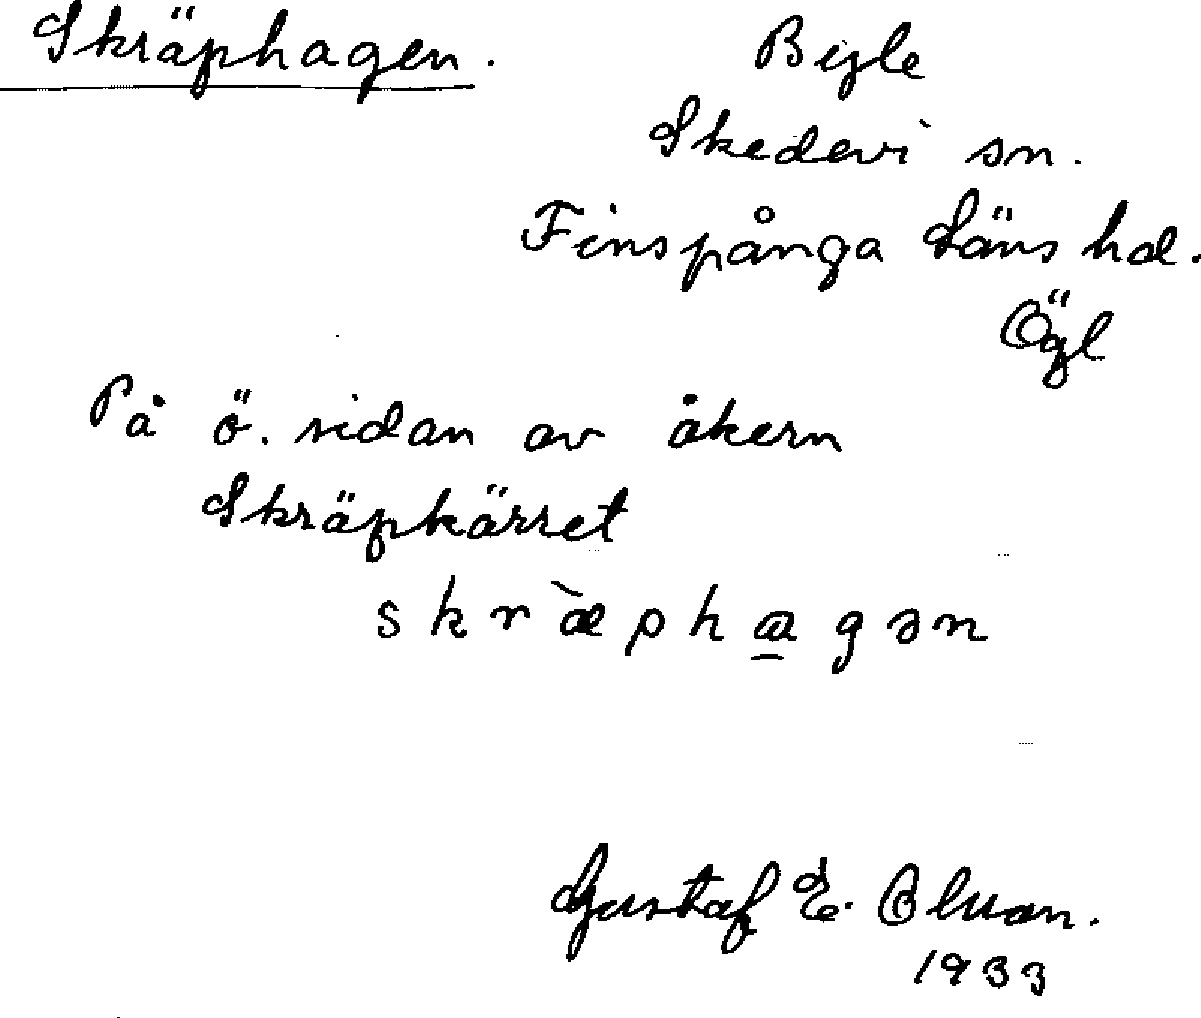 Skräphagen.
Bysle
Skedevi sn.
Finspånga Läns hd.
Ögl
På ö. sidan av åkern
Skräpkärret
skræ̀phɑ̱gən
Gustaf E.
1933